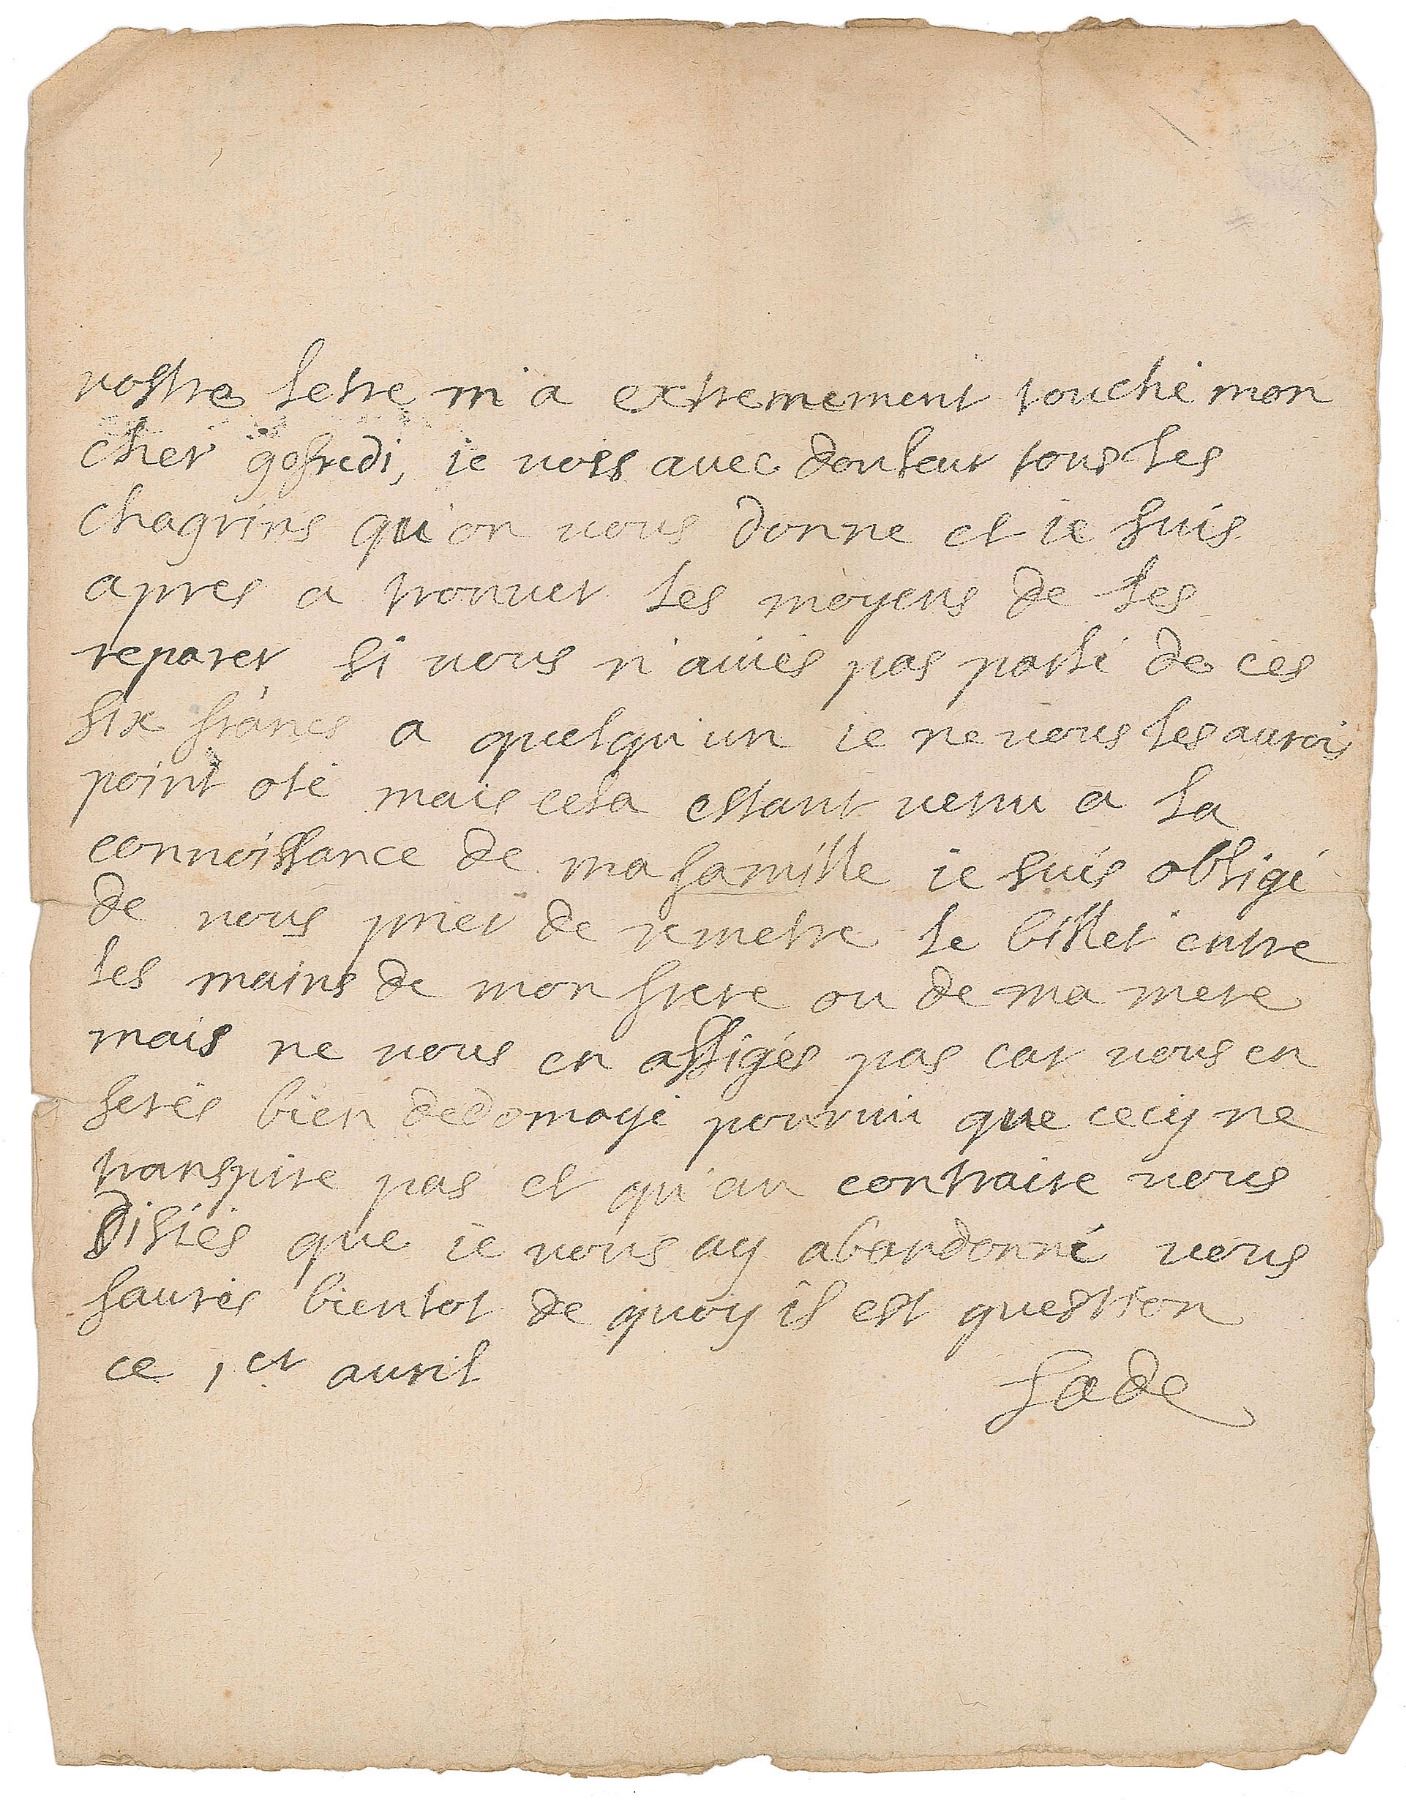 vostre letre m'a extremement touché mon
cher gofredi, ie vois avec douleur tous les
chagrins qu'on vous donne et ie suis
apres a trouver les moyens de les
reparer si vous n'aviés pas parlé de ces
six francs a quelqu'un ie ne vous les aurois
point oté mais cela estant venu a la
connoissance de ma famille ie suis obligé
de vous prier de remetre le billet entre
les mains de mon frere ou de ma mere
mais ne vous en affligés pas car vous en
serés bien dedomagé pourvu que cecy ne
transpire pas et qu'au contraire vous
disiés que ie vous ay abandonné vous
saurés bientot de quoy il est question
ce 1er avril
Sade